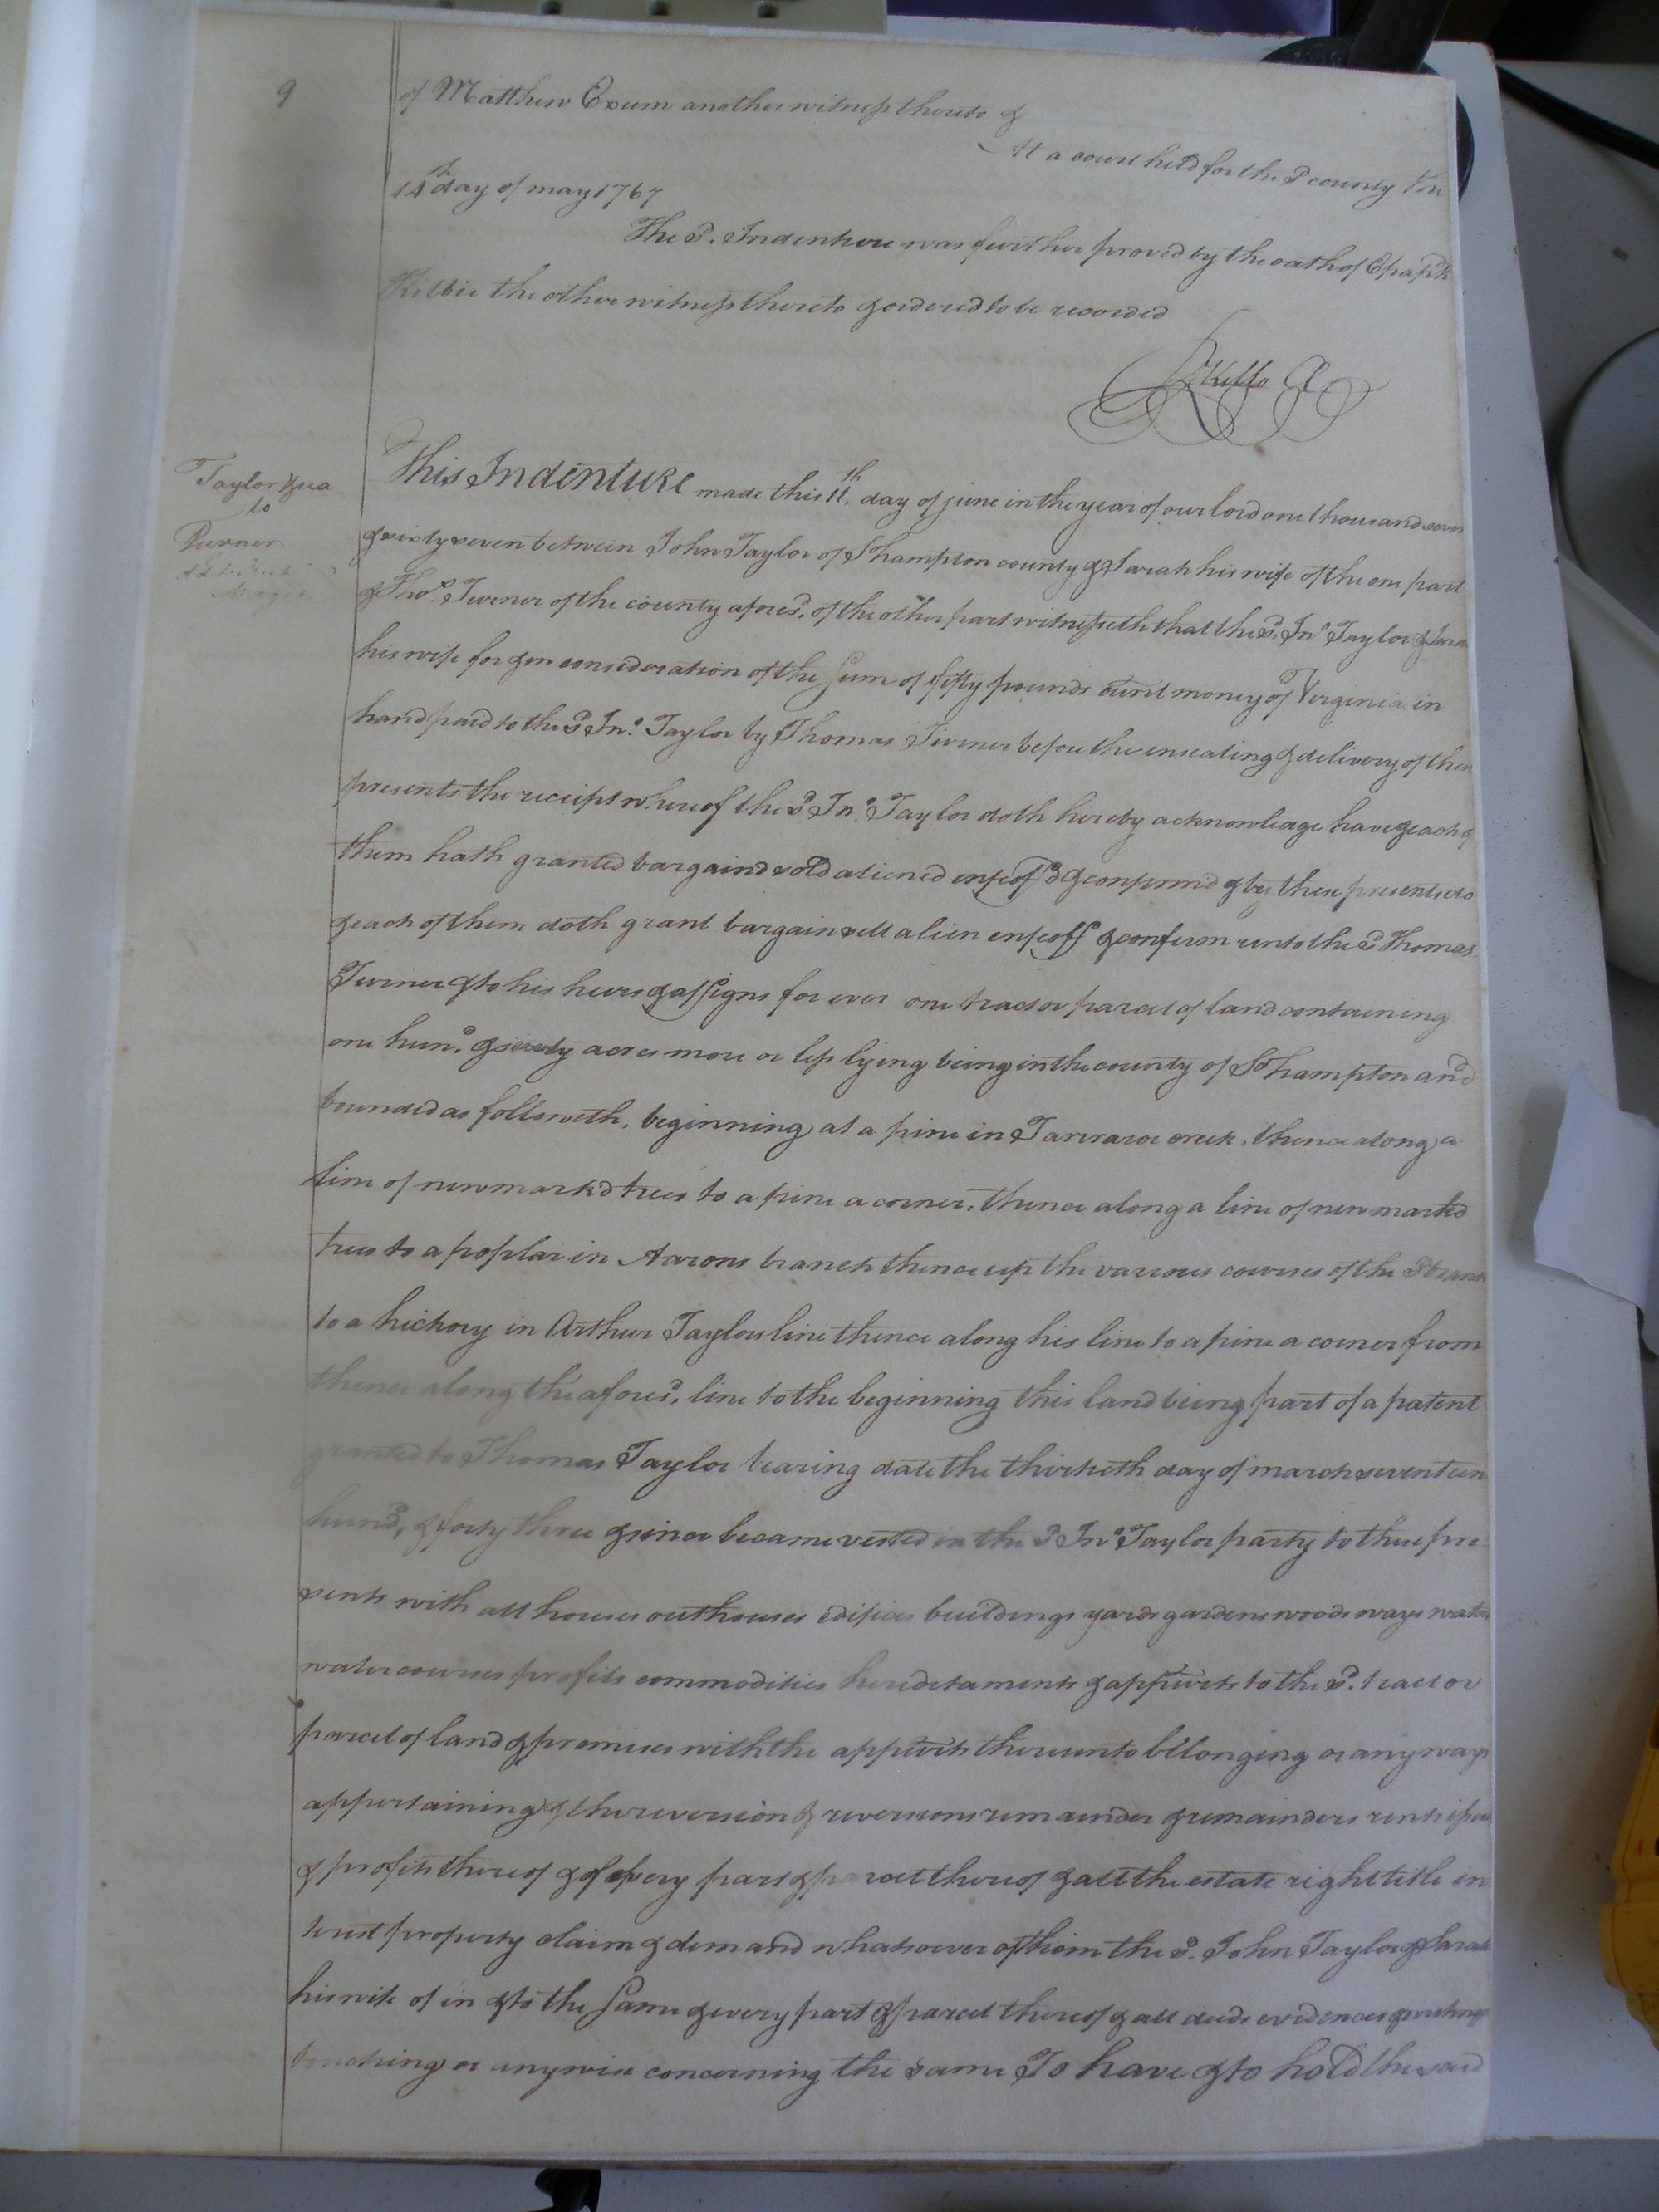 9
of Matthew Exum another witness thereto &
At a court held for the sd county the
14th day of may 1767
The sd. Indenture was further proved by the oath of Epap'k
Kilbie the other witness thereto & ordered to be recorded
Kello Cl
Taylor & ua
to
Turner
This Indenture made this 11th. day of june in the year of our lord one thousand seven
& sixty seven between John Taylor of So hampton county & Sarah his wife of the one part
& Thos. Turner of the county afores'd. of the other part witnesseth that the sd. Jno Taylor & Sarah
his wife for & in consideration of the Sum of fifty pounds curnt money of Virginia in
hand paid to the sd Jno. Taylor by Thomas Turner before the ensealing & delivery of these
presents the receipt whereof the sd Jno. Taylor doth hereby acknowleage have & each of
them hath granted bargain'd sold aliened enfeoff'd & confirm'd & by these presents do
& each of them doth grant bargain sell alien enfeoff & confirm unto the sd Thomas
Turner & to his heirs & assigns for ever one tract or parcel of land containing
one hund. & acres more or less lying being in the county of So hampton and
bounded as followeth, beginning at a pine in Tarrarar creek, thence along a
line of new mark'd trees to a pine a corner, thence along a line of new marked
trees to a poplar in Aarons branch thence up the various courses of the sd branch
to a hickory in Arthur Taylors line thence along his line to a pine a corner from
thence along the afores'd. line to the beginning this land being part of a patent
granted to Thomas Taylor bearing date the thirtieth day of march seventeen
hund, & forty three & since became vested in the sd Jno Taylor party to these pre-
sents with all houses outhouses edifices buildings yards gardens woods ways waters
water courses profits commodities hereditaments & appurts to the sd. tract or
parcel of land & premises with the appurts thereunto belonging or any ways
appertaining & the reversion & reversions remainder & remainders rents issues
& profits thereof & of every part & parcel thereof & all the estate right title in
terest property claim & demand whatsoever of them the sd. John Taylor & Sarah
his wife of in & to the Same & every part & parcel thereof & all deeds evidences & writings
touching or anywise concerning the same To have & to hold the said